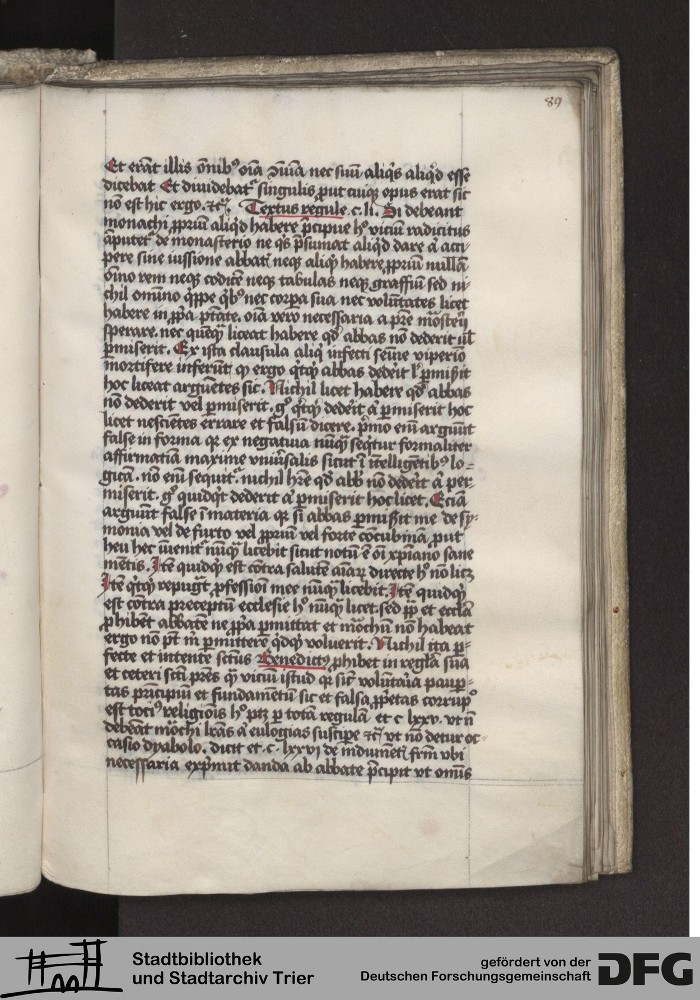 89
Et erāt illis ōnibꝰ oīa ꝯmūia nec suū aliqͥs aliqͥd esse
dicebat Et diuidebatᷣ singulis ꝓut cuiqꝫ opus erat sic
nō est hic ergo ⁊cͣ. Textus regule c. li. Si debeant
monachi ꝓpriū aliqͥd habere p̄cipue hͦ viciū radicitus
āputetᷣ de monasterio ne qͥs p̄sumat aliqͥd dare aͭ acci
pere sine iussione abbatꝭ neqꝫ aliqͥ habere ꝓpriū nullā
oīno rem neqꝫ codicē neqꝫ tabulas neqꝫ graffiū sed ni
chil omīno qͥppe qͥbꝰ nec corpa sua nec volūtates licet
habere in ꝓpͥa ptāte. oīa vero necessaria a pre moͣsterij
sperare. nec quēqͣ liceat habere qͦd abbas nō dederit ul̓
ꝑmiserit. Ex ista clausula aliqͥ infecti semīe viperīo
mortifere inferūt qͥ ergo qͥtqͥd abbas dedeit ul̓ ꝑmiẞit
hoc liceat arguētes sic. Nichil licet habere qͦd abbas
nō dederit vel ꝑmiserit. gͦ qͥtqͥd dedeit aͭ ꝑmiserit hoc
licet nesciētes errare et falsū dicere. pͥmo enī arguūt
false in forma qꝛ ex negatiua nūqͣ seqͥtur formaliter
affirmatīa maxime vniũsalis sicut ꝭ ītelligētibꝰ lo-
gicā. nō enī sequitᷣ. nichil hr̄e qͦd abbꝭ nō dedeit aͭ per
miserit. gͦ quidqͥt dederit aͭ ꝑmiserit hoc licet. Eciā
arguūt false ī materia qꝛ si abbas ꝑmiẞit me de sy-
monia vel de furto vel ꝓpriū vel forte ꝯcubinā put
heu hec īuenitᷣ nūqͣ licebit sicut notū ē oī xpiano sane
mētis. Itē quidqͥd est cōtra salutē aīaꝝ directe hͦ nō licꝫ
Itē qͥtqͥd repugͣt ꝓfessioī mee nūqͣ licebit. Itē quidqͥd
est cōtra preceptū ecclesie hͦ nūqͣ licet. sed pp̄ et ecclīa
ꝓhibēt abbatē ne ꝓpͥa ꝑmittat et moͣchū nō habeat
ergo nō pͭt m ꝑmittere qͥdqͥd voluerit. Nichil ita ꝑ-
fecte et intente sctūs Benedictꝰ ꝓhibet in regla sua
et ceteri scti pres qͣ viciū istud qꝛ sicͭ volūtaia pauꝑ-
tas pͥncipiū et fundamētū sic et falsa ꝓpͥetas corrupͦ
est tociꝰ religionis hͦ ptꝫ ꝑ totā regulā et c lxxv. vt nō
debeāt moͣchi lrās aͭ eulogias suscipe ⁊cͣ vt nō detur oc
casio dyabolo. dicit et c. lxxvi de īdumētꝭ frm̄ vbi
necessaria expͥmit danda ab abbate p̄cipit vt omīs
Stadtbibliothek
und Stadtarchiv Trier
gefördert von der
Deutschen Forschungsgemeinschaft
DFG